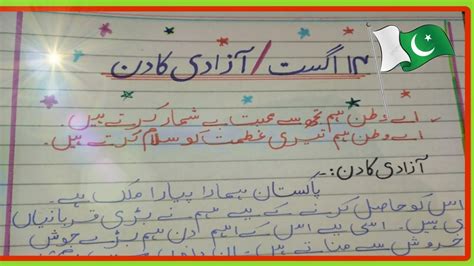 ۱۴ اگست / آزادی کا دن
اے وطن ہم تجھ سے محبت بے شمار کرتے ہیں۔
اے وطن ہم تیری عظمت کو سلام کرتے ہیں۔
آزادی کا دن:
پاکستان ہمارا پیارا ملک ہے۔
اس کو حاصل کرنے کے لیے ہم نے بڑی قربانیاں
دی ہیں۔ اسی لیے اس کے اہم دن ہم بڑے جوش
خروش سے مناتے ہیں۔ ان دنوں